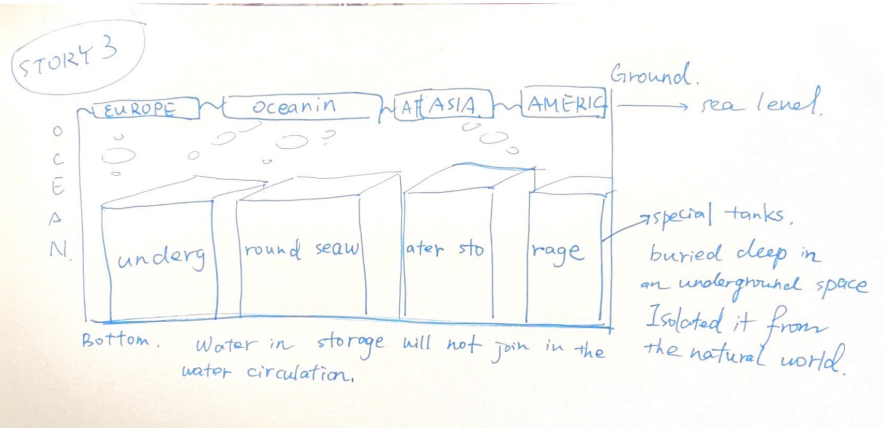 STORY 3
Ground.
EUROPE oceanin Af ASIA AMERIC → sea level.
?
OCEAN.
underg round seaw ater sto rage
special tanks.
buried deep in
an underground space
Isolated it from
the natural world.
Bottom. Water in storage will not join in the
water circulation.